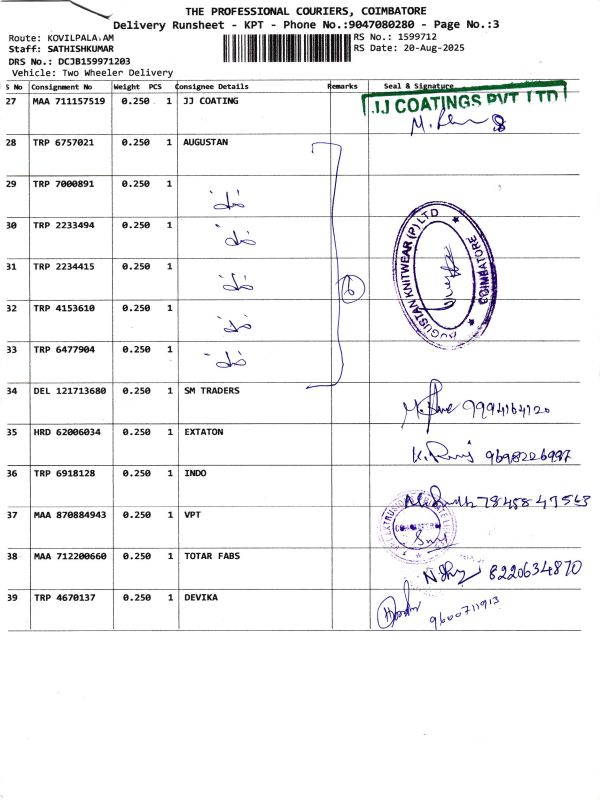 THE PROFESSIONAL COURIERS, COIMBATORE
Delivery Runsheet - KPT - Phone No.:9047080280 - Page No.:3
Route: KOVILPALA.AM RS No.: 1599712
Staff: SATHISHKUMAR RS Date: 20-Aug-2025
DRS No.: DCJB159971203
Vehicle: Two Wheeler Delivery
S No Consignment No Weight PCS Consignee Details Remarks Seal & Signature
27 MAA 711157519 0.250 1 JJ COATING J.J COATINGS PVT LTD
28 TRP 6757021 0.250 1 AUGUSTAN
29 TRP 7000891 0.250 1
30 TRP 2233494 0.250 1
AUGUSTAN KNITWEAR (P) LTD COIMBATORE
31 TRP 2234415 0.250 1
6
32 TRP 4153610 0.250 1
33 TRP 6477904 0.250 1
34 DEL 121713680 0.250 1 SM TRADERS
9994164120
35 HRD 62006034 0.250 1 EXTATON
9698226997
36 TRP 6918128 0.250 1 INDO
7845847543
37 MAA 870884943 0.250 1 VPT
38 MAA 712200660 0.250 1 TOTAR FABS
8220634870
39 TRP 4670137 0.250 1 DEVIKA
9600711913